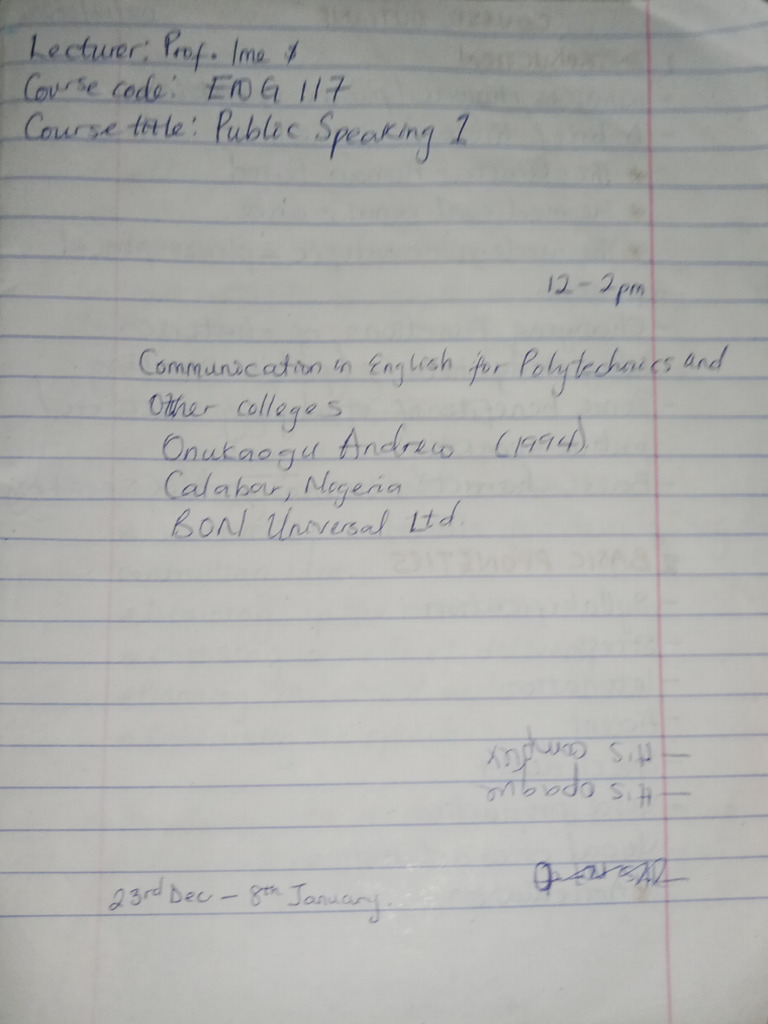 Lecturer: Prof. Ime
Course code: ENG 117
Course title: Public Speaking 1
12 - 2pm
Communication in English for Polytechnics and
Other colleges
Onukaogu Andrew (1994)
Calabar, Nigeria
BON Universal Ltd.
- It's complex
- It's opaque
23rd Dec - 8th January.